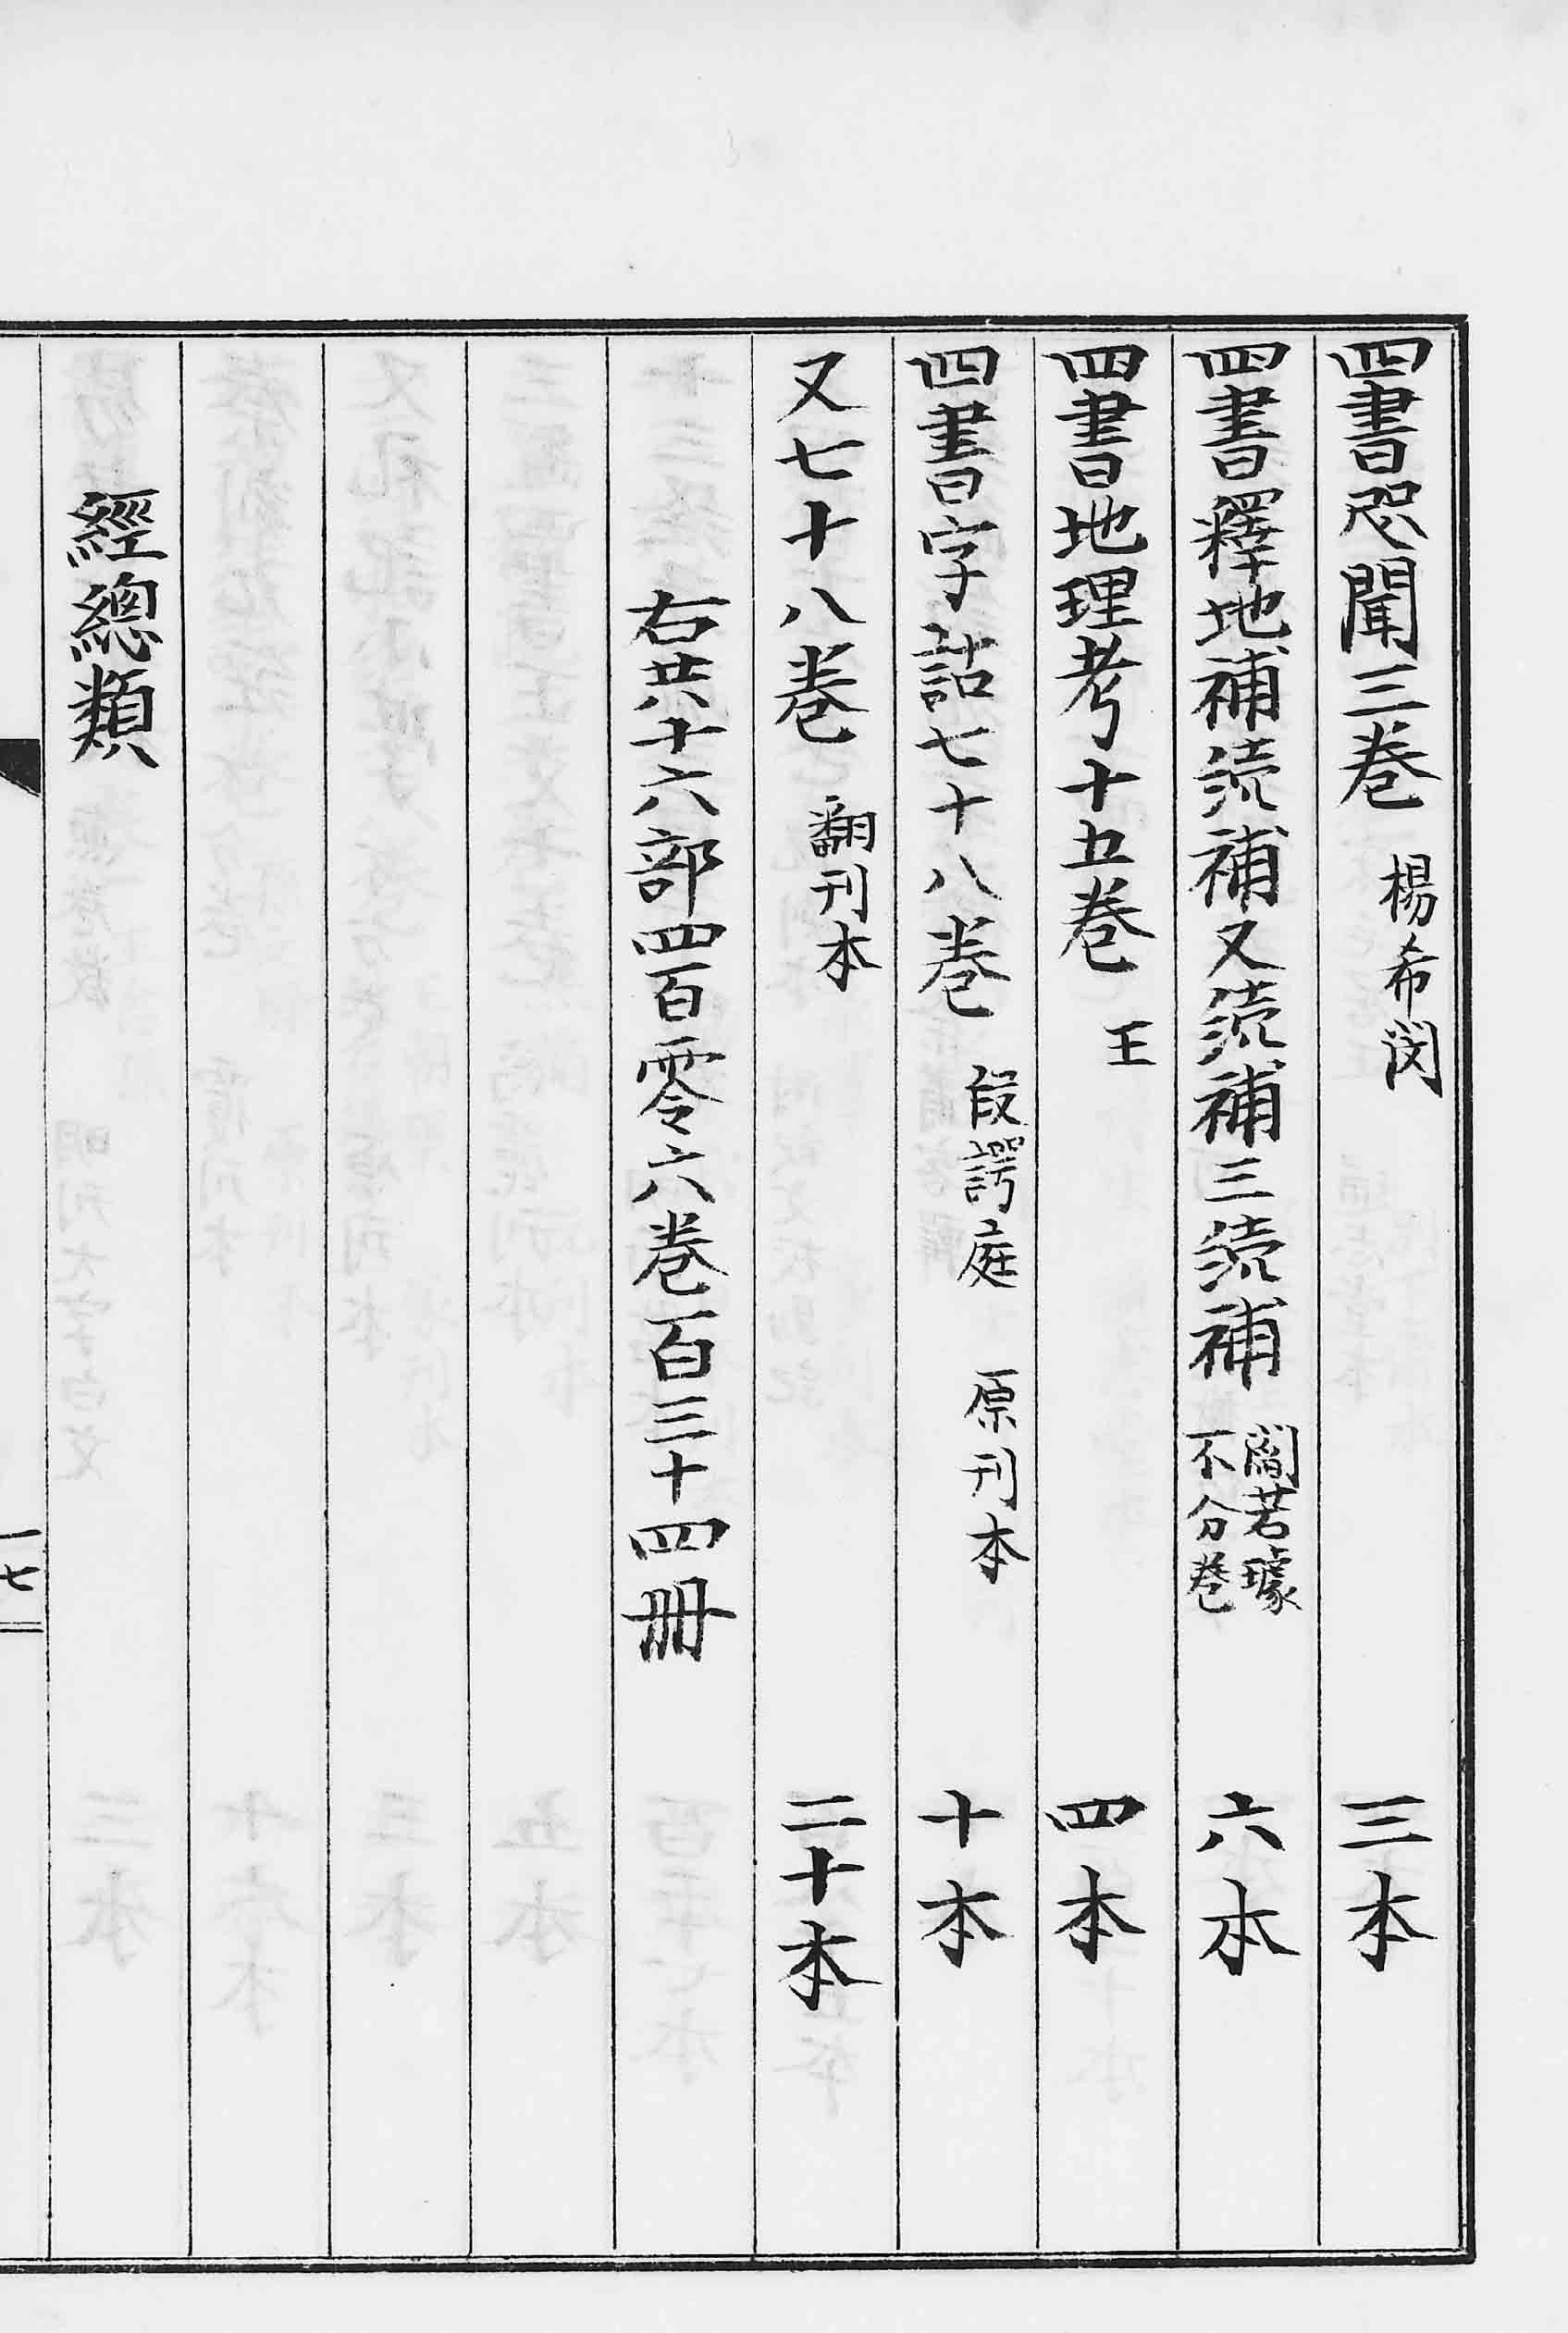 四書咫聞三卷 楊希閔 三本
四書釋地補續補又續補三續補 閻若璩 不分卷 六本
四書地理考十五卷 王 四本
四書字詁七十八卷 段諤庭 原刊本 十本
又七十八卷 翻刊本 二十本
右共十六部四百零六卷百三十四冊
經總類
一七